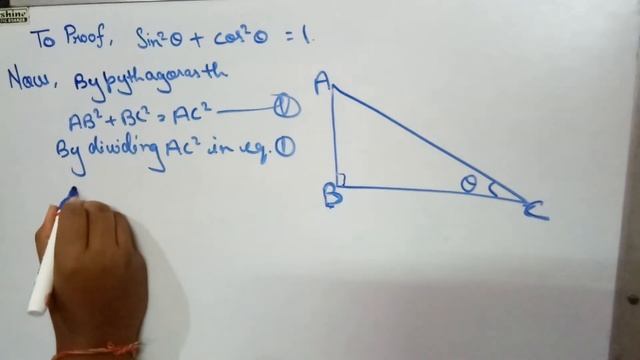 shine
To Proof, Sin²θ + cos²θ = 1.
Now, By pythagoras th
AB² + BC² = AC² — ①
By dividing AC² in eq. ①
A
B
θ
C